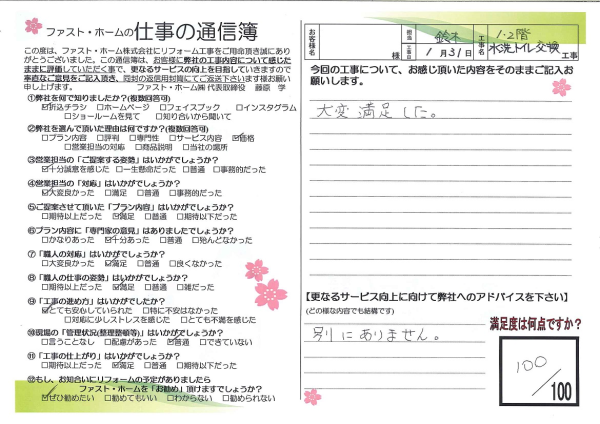 ファスト・ホームの仕事の通信簿
この度は、ファスト・ホーム株式会社にリフォーム工事をご用命頂き誠にあり
がとうございました。この通信簿は、お客様に弊社の工事内容について感じた
ままに評価していただく事で、更なるサービスの向上を目指していきますので
率直なご意見をご記入頂き、同封の返信用封筒にてご返送下さいます様お願い
申し上げます。 ファスト・ホーム㈱ 代表取締役 藤原 学
①弊社を何で知りましたか?(複数回答可)
☑折込チラシ □ホームページ □フェイスブック □インスタグラム
□ショールームを見て □知り合いから聞いて
②弊社を選んで頂いた理由は何ですか?(複数回答可)
□プラン内容 □評判 □専門性 □サービス内容 ☑価格
□営業担当の対応 □商品説明 □当社の場所
③営業担当の「ご提案する姿勢」はいかがでしょうか?
☑十分誠意を感じた □一生懸命だった □普通 □事務的だった
④営業担当の「対応」はいかがでしょうか?
☑大変良かった □満足 □普通 □事務的だった
⑤ご提案させて頂いた「プラン内容」はいかがでしょうか?
□期待以上だった ☑満足 □普通 □期待以下だった
⑥プラン内容に「専門家の意見」はありましたでしょうか?
□かなりあった ☑十分あった □普通 □殆んどなかった
⑦「職人の対応」はいかがでしょうか?
□大変良かった ☑満足 □普通 □良くなかった
⑧「職人の仕事の姿勢」はいかがでしょうか?
□期待以上だった ☑満足 □普通 □雑だった
⑨「工事の進め方」はいかがでしたか?
☑とても安心していられた □特に不安はなかった
□対応に少しストレスを感じた □とても不満を感じた
⑩現場の「管理状況(整理整頓等)」はいかがでしょうか?
□言うことなし □配慮があった ☑普通 □できていない
⑪「工事の仕上がり」はいかがでしょうか?
□期待以上だった ☑満足 □普通 □期待以下だった
⑫もし、お知合いにリフォームの予定がありましたら
ファスト・ホームを「お勧め」頂けますでしょうか?
☑ぜひ勧めたい □勧めてもいい □わからない □勧められない
お客様名
様
担当 鈴木
工事日 1月31日
工事名 1・2階
水洗トイレ交換 工事
今回の工事について、お感じ頂いた内容をそのままご記入お
願いします。
大変満足した。
【更なるサービス向上に向けて弊社へのアドバイスを下さい】
(どの様な内容でも結構です)
別にありません。
満足度は何点ですか?
100
/100